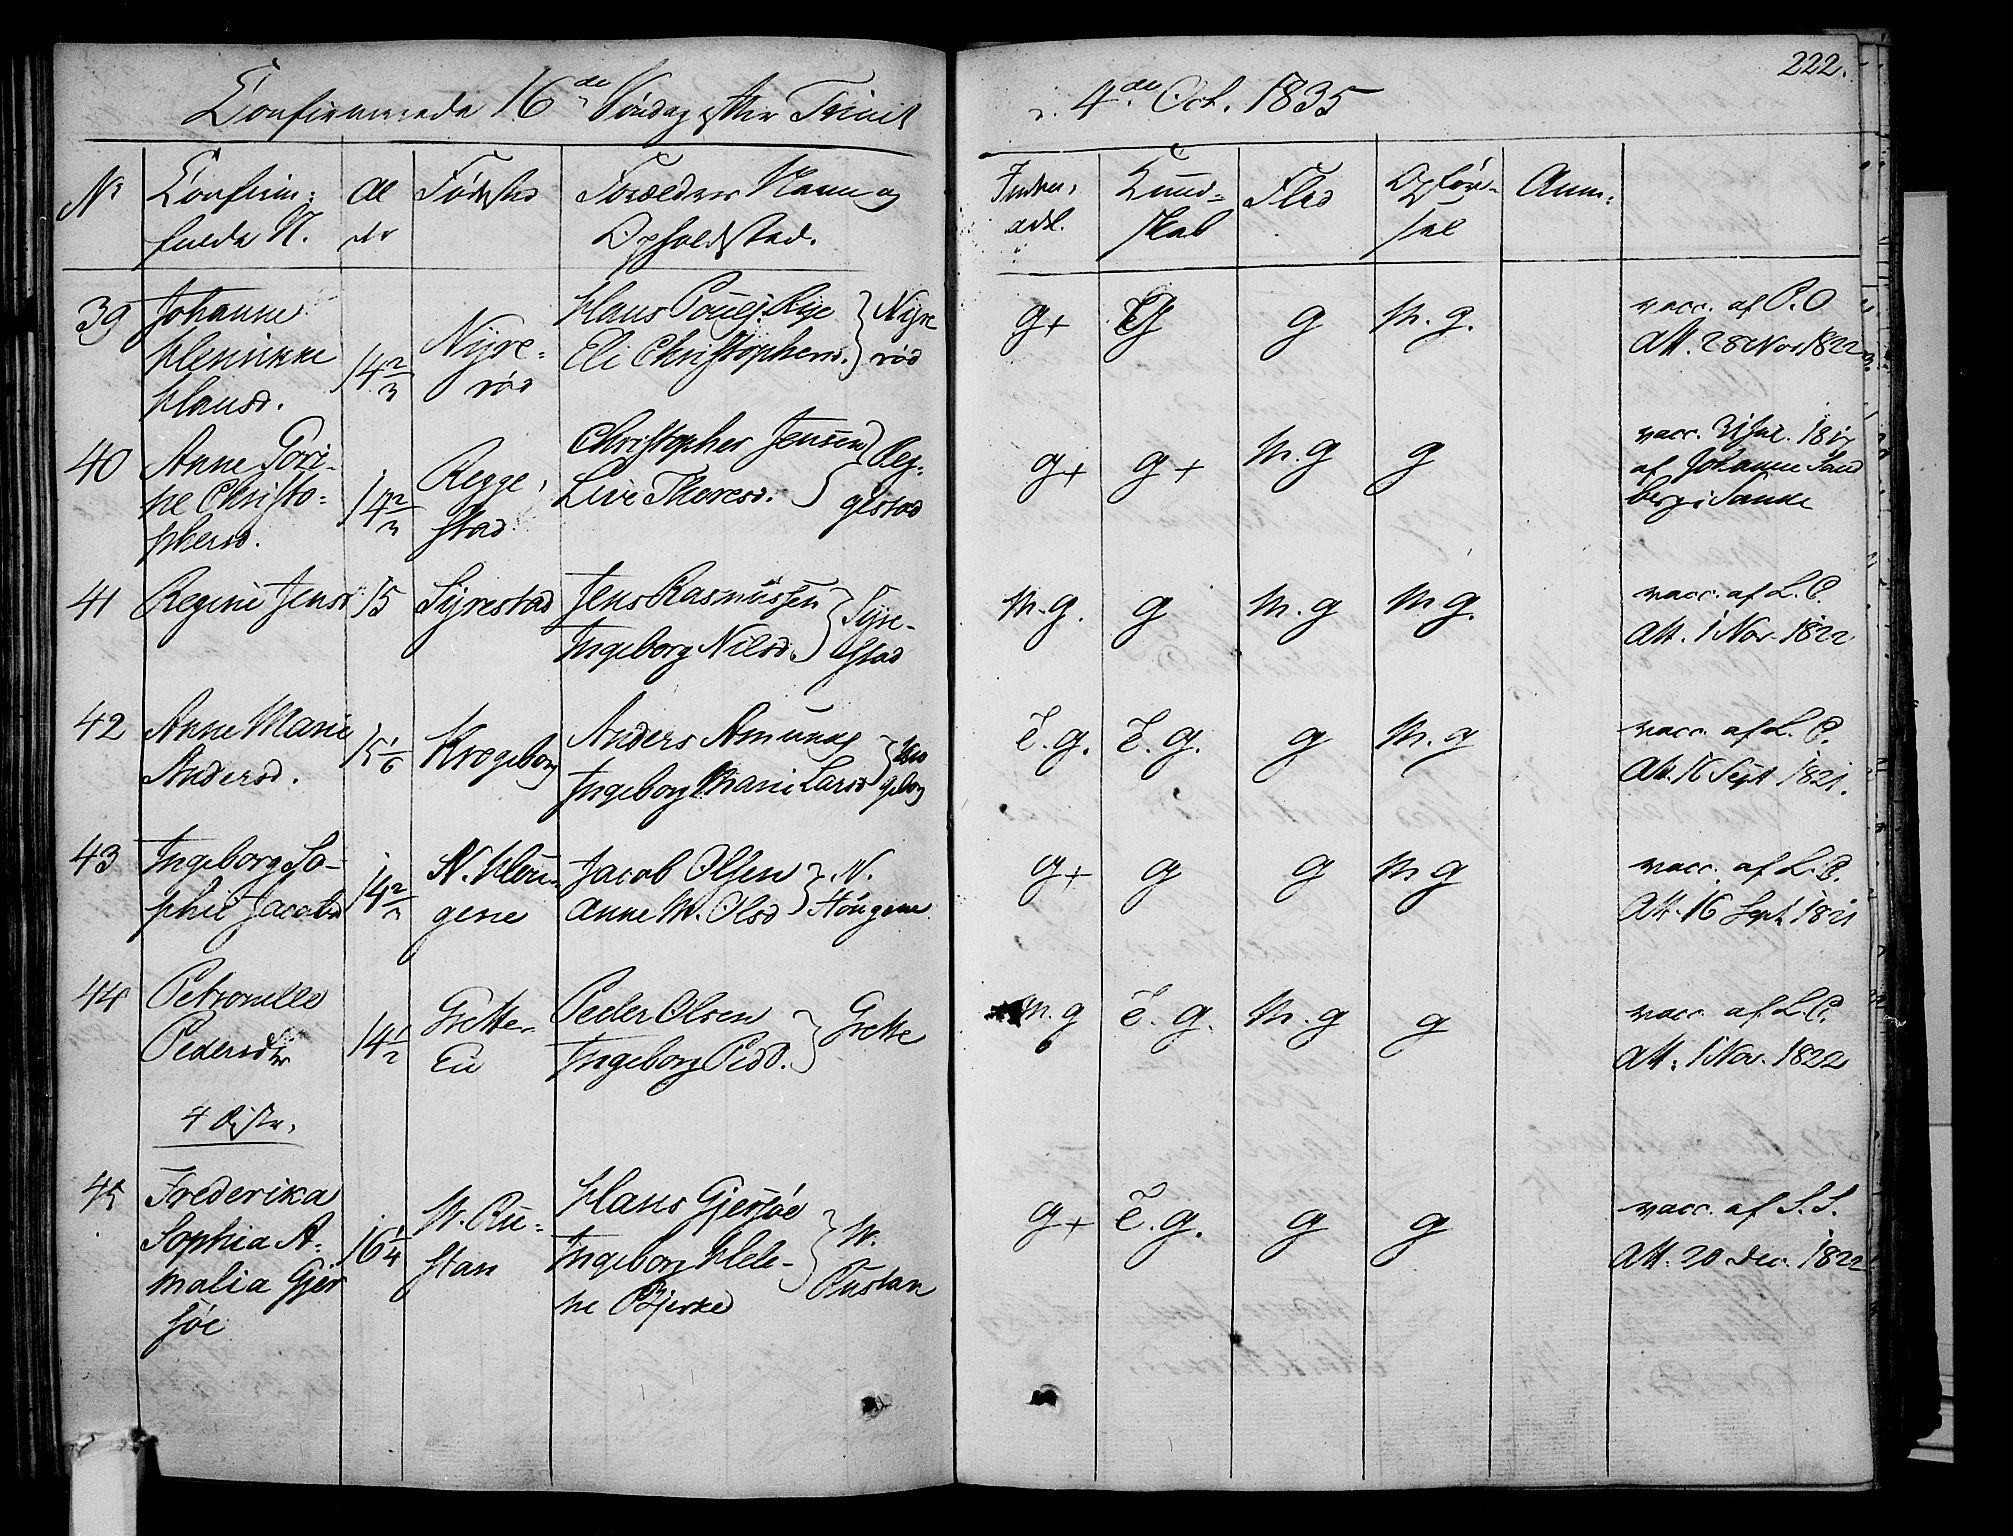 222.
Confirmerede 16de Søndag efter Trinit
4de Oct. 1835
No Confirm: Al Fødested Forældres Navn og
fulde N. der Opholdsted.
Kund- Flid Opfør- Anm:
skab sel
39 Johanne Henrikke Hansd. 14 2/3 Nyre-rød
Hans Poulς. Rye
Eli Christophersd. } Nyre rød
g+ g g m.g.
vacc. af P. C
Att. 28 Nov 1822
40 Anne Tori-ne Christo-phersd. 14 2/3 Regge-stad
Christopher Jensen
Live Thoresd. } Reg-gestad
g+ g+ m.g g
vacc. 31 Jul. 1817
af Johanne Sand
berg i Sande
41 Regine Jensd 15 Syrestad
Jens Rasmussen
Ingeborg Nilsd. } Syre-stad
m.g. g m.g m g.
vacc. af L. C.
Att. 1 Nov. 1822
42 Anne Marie Andersd. 15 1/6 Krogeborg
Anders Amunds
Ingeborg Marie Larsd } Kro geborg
t.g. t.g. g m.g
vacc. af L. C.
Att. 16 Sept 1821.
43 Ingeborg So-phie Jacobsd 14 2/3 N. Hou-gene
Jacob Olsen
Anne M. Olsd } N. Høugene
g+ g g m g
vacc. af L. C.
Att. 16 Sept 1821
44 Petronelle Pedersdtr 14 1/2 Grette-Eie
Peder Olsen
Ingeborg Pedd. } Grette
m.g t.g. m.g g
vacc. af L. C.
Att. 1 Nov. 1822
4 Distr.
45 Frederika Sophia A-malia Gjer søe 16 1/4 W. Ru-stan
Hans Gjersøe
Ingeborg Hele-ne Bjerke } W. Rustan
g+ t.g. g g
vacc. af S. S.
Att. 20 Dec. 1822